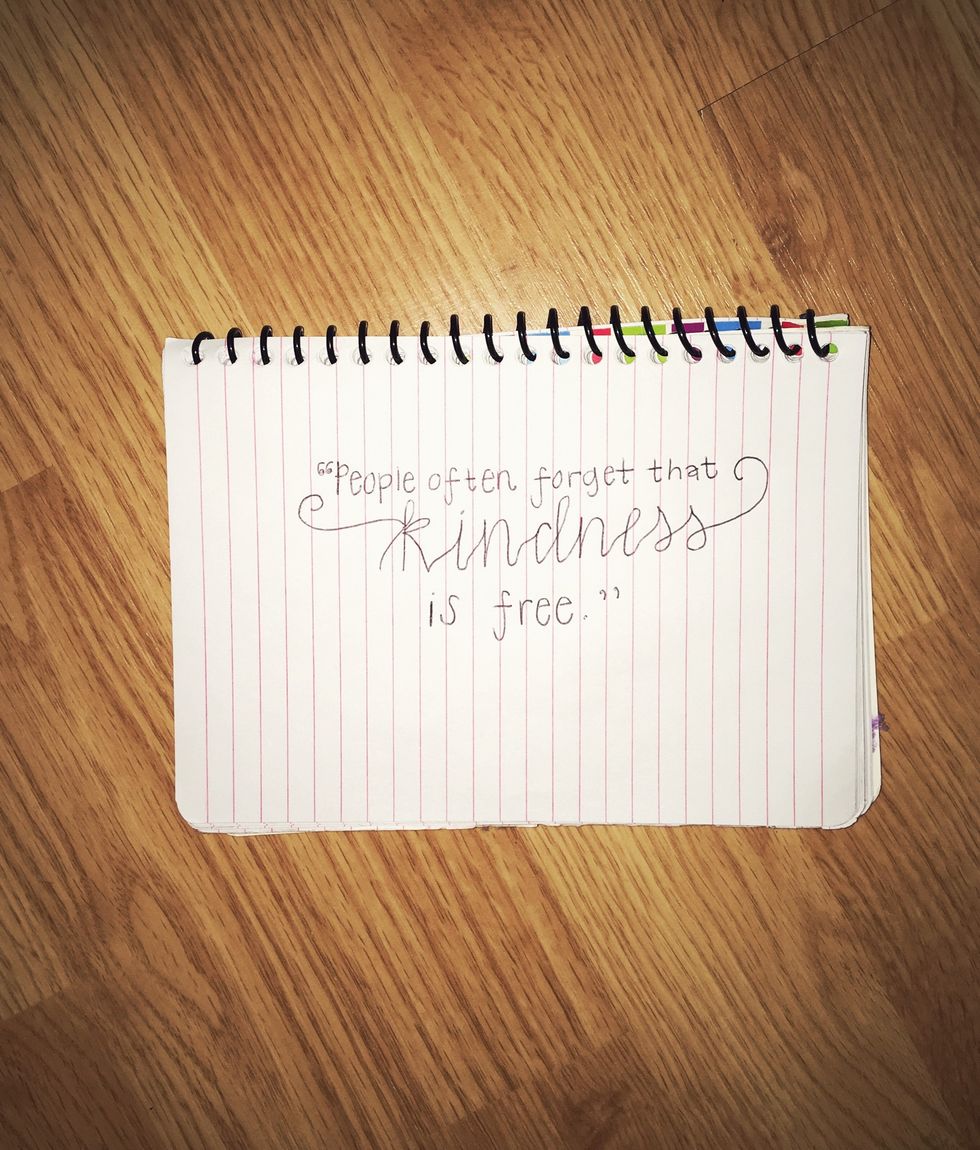 “People often forget that
kindness
is free.”